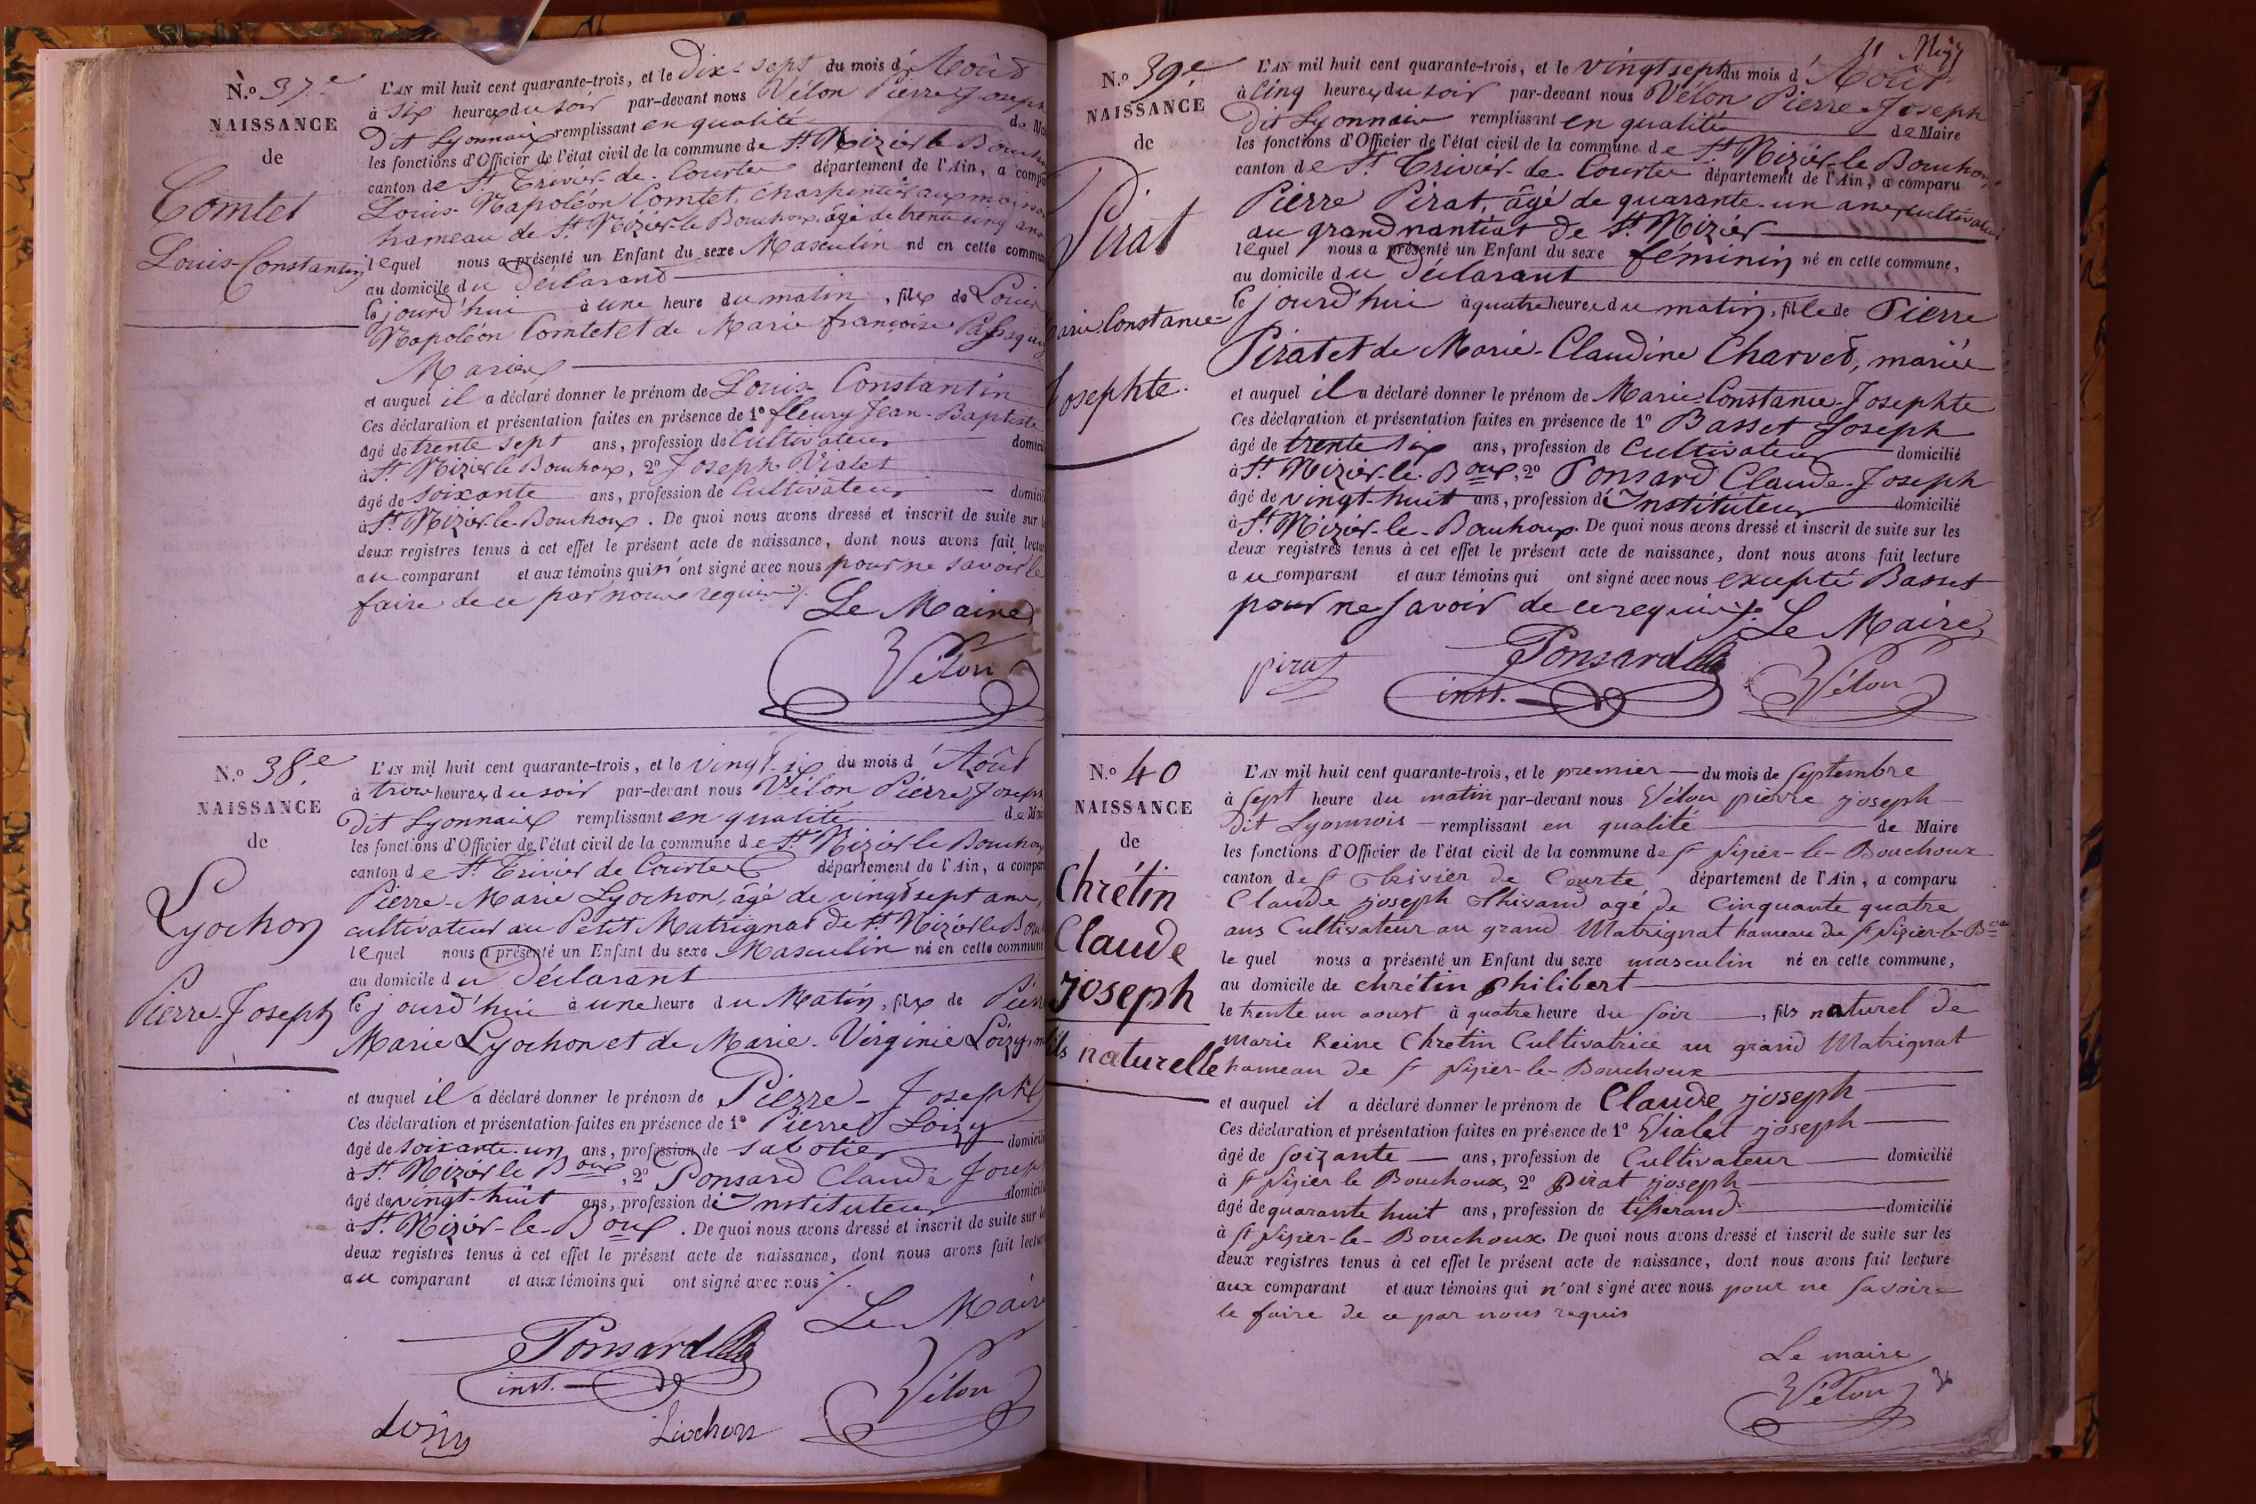 N.o 37.e
NAISSANCE
de
Comtet
Louis-Constantin
L'AN mil huit cent quarante-trois, et le Dix-sept du mois d'Août
à six heures du soir par-devant nous Vélon Pierre Joseph
Dit Lyonnais remplissant en qualité de
les fonctions d'Officier de l'état civil de la commune de St. Nizier le
canton de St. Trivier-de-Courtes département de l'Ain, a
Louis-Napoléon Comtet, charpentier aux
hameau de St. Nizier le Bouchoux, âgé de trente cinq ans
lequel nous a présenté un Enfant du sexe Masculin né en cette
au domicile du Déclarant
ce jourd'hui à une heure du matin, fils de Louis
Napoléon Comtet et de Marie françoise
Mariés
et auquel il a déclaré donner le prénom de Louis Constantin
Ces déclaration et présentation faites en présence de 1o fleury Jean-Baptiste
âgé de trente sept ans, profession de Cultivateur
à St. Nizier le Bouchoux, 2o Joseph Vialet
âgé de soixante ans, profession de Cultivateur
à St. Nizier-le-Bouchoux. De quoi nous avons dressé et inscrit de suite sur
deux registres tenus à cet effet le présent acte de naissance, dont nous avons fait
au comparant et aux témoins qui n'ont signé avec nous pour ne savoir le
faire de ce par nous requis.
Le Maire
Vélon
N.o 38.e
NAISSANCE
de
Lyochon
Pierre-Joseph
L'AN mil huit cent quarante-trois, et le vingt-six du mois d'Août
à trois heures du soir par-devant nous Vélon Pierre Joseph
Dit Lyonnais remplissant en qualité de
les fonctions d'Officier de l'état civil de la commune de St. Nizier le
canton de St. Trivier de Courtes département de l'Ain, a
Pierre-Marie Lyochon, âgé de vingt sept ans,
cultivateur au Petit Matrignat de St. Nizier le
lequel nous a présenté un Enfant du sexe Masculin né en cette
au domicile du Déclarant
ce jourd'hui à une heure du Matin, fils de
Marie Lyochon et de Marie-Virginie Loizy,
et auquel il a déclaré donner le prénom de Pierre-Joseph
Ces déclaration et présentation faites en présence de 1o Pierre Loizy
âgé de soixante-un ans, profession de sabotier
à St. Nizier le Boux, 2o Ponsard Claude
âgé de vingt-huit ans, profession d'Instituteur
à St. Nizier-le-Boux. De quoi nous avons dressé et inscrit de suite sur
deux registres tenus à cet effet le présent acte de naissance, dont nous avons fait
au comparant et aux témoins qui ont signé avec nous
Le
Ponsard
inst.
Vélon
Loizy
Liochon
N.o 39.e
NAISSANCE
de
Pirat
Constance
Josephte.
11
L'AN mil huit cent quarante-trois, et le vingt sept du mois d'Août
à Cinq heures du soir par-devant nous Vélon Pierre-Joseph
Dit Lyonnais remplissant en qualité de Maire
les fonctions d'Officier de l'état civil de la commune de St. Nizier-le Bouchoux
canton de St. Trivier-de-Courtes département de l'Ain, a comparu
Pierre Pirat, âgé de quarante-un ans, cultivateur
au grand nantiat de St. Nizier
lequel nous a présenté un Enfant du sexe féminin né en cette commune,
au domicile du Déclarant
ce jourd'hui à quatre heures du matin, fille de Pierre
Pirat et de Marie-Claudine Charvet, mariés
et auquel il a déclaré donner le prénom de Marie-Constance-Josephte
Ces déclaration et présentation faites en présence de 1o Basset Joseph
âgé de trente six ans, profession de Cultivateur domicilié
à St. Nizier-le-Boux, 2o Ponsard Claude-Joseph
âgé de vingt-huit ans, profession d'Instituteur domicilié
à St. Nizier-le-Bouchoux. De quoi nous avons dressé et inscrit de suite sur les
deux registres tenus à cet effet le présent acte de naissance, dont nous avons fait lecture
au comparant et aux témoins qui ont signé avec nous excepté Basset
pour ne savoir de ce requis. Le Maire
pirat
Ponsard
inst.
Vélon
N.o 40
NAISSANCE
de
Chrétin
Claude
joseph
fils naturelle
L'AN mil huit cent quarante-trois, et le premier du mois de Septembre
à Sept heure du matin par-devant nous Vélon pierre joseph
Dit Lyonnois remplissant en qualité de Maire
les fonctions d'Officier de l'état civil de la commune de St Nizier-le-Bouchoux
canton de St Thivier de Courte département de l'Ain, a comparu
Claude joseph Thivaud agé de Cinquante quatre
ans Cultivateur au grand Matrignat hameau de St Nizier-le-Boux
le quel nous a présenté un Enfant du sexe masculin né en cette commune,
au domicile de chrétin philibert
le trente un aoust à quatre heure du Soir, fils naturel de
Marie Reine Chretin Cultivatrice au grand Matrignat
hameau de St Nizier-le-Bouchoux
et auquel il a déclaré donner le prénom de Claude joseph
Ces déclaration et présentation faites en présence de 1o Vialet joseph
âgé de Soizante ans, profession de Cultivateur domicilié
à St Nizier le Bouchoux, 2o pirat joseph
âgé de quarante huit ans, profession de tisserand domicilié
à St Nizier-le-Bouchoux. De quoi nous avons dressé et inscrit de suite sur les
deux registres tenus à cet effet le présent acte de naissance, dont nous avons fait lecture
aux comparant et aux témoins qui n'ont signé avec nous pour ne Savoire
le faire de ce par nous requis
Le maire
Vélon